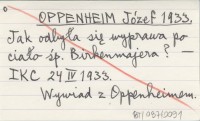 OPPENHEIM Józef 1933.
Jak odbyła się wyprawa po
ciało śp. Birkenmajera? —
IKC 24 IV 1933.
Wywiad z Oppenheimem.